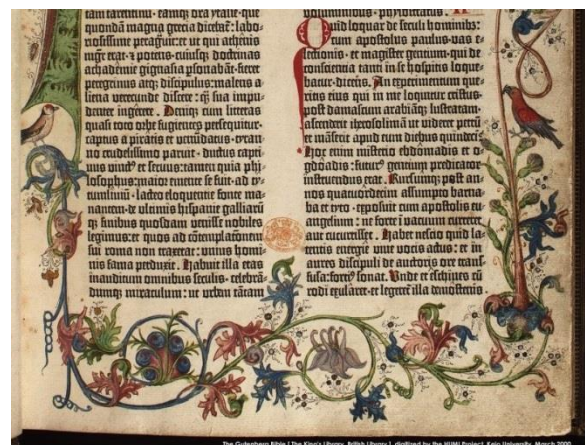 iam tarentinū · eamq; ora ytalie · que
quondā magna grecia dicebat᷑: labo-
riosissime peragrauit: et ut qui athenis
mgr̄ erat · ⁊ potens · cuiusq; doctrinas
achademie gignasia psonabāt · fieret
peregrinus atq; discipulus: malens a-
liena verecunde discere: q̄ sua impu-
denter ingerere · Deniq; cum litteras
quasi toto orbe fugientes persequitur ·
captus a piratis et venūdatus · tyran-
no crudelissimo paruit · ductus capti-
uus vinct᷒ et seruus: tamen quia phi-
losophus: maior emente se fuit · ad ty-
tumliuiū · lacteo eloquentie fonte ma-
nantem · de vltimis hispanie galliarū
q; finibus quosdam venisse nobiles
legimus: et quos ad cōtemplacionem
sui roma non traxerat: unius homi-
nis fama perduxit · Habuit illa etas
inauditum omnibus seculis · celebrā-
dumq; miraculum: ut urbem tātam
voluminibus · phylostratus ·
Quid loquar de seculi hominibus:
cum apostolus paulus · vas e-
lectionis · et magister gentium · qui de
consciencia tanti in se hospitis loque-
batur · dicens · An experimentum que-
ritis eius qui in me loquitur cristus ·
post damascum arabiāq; lustratam ·
ascenderit iherosolimā ut videret petrū
et māserit apud eum diebus quindeci ·
Hoc enim misterio ebdomadis et o-
gdoadis: futur᷒ gentium predicator
instruendus erat · Rursumq; post an-
nos quatuordecim assumpto barna-
ba et tyto · exposuit cum apostolis eu-
angelium: ne forte ī vacuum curreret
aut cucurrisset · Habet nescio quid la-
tentis energie viue vocis actus: et in
aures discipuli de auctoris ore trans-
fusa: forci᷒ sonat · Unde et eschines cū
rodi exularet · et legeret᷑ illa demostenis ·
The Gutenberg Bible [The King's Library, British Library], digitised by the HUMI Project, Keio University, March 2000